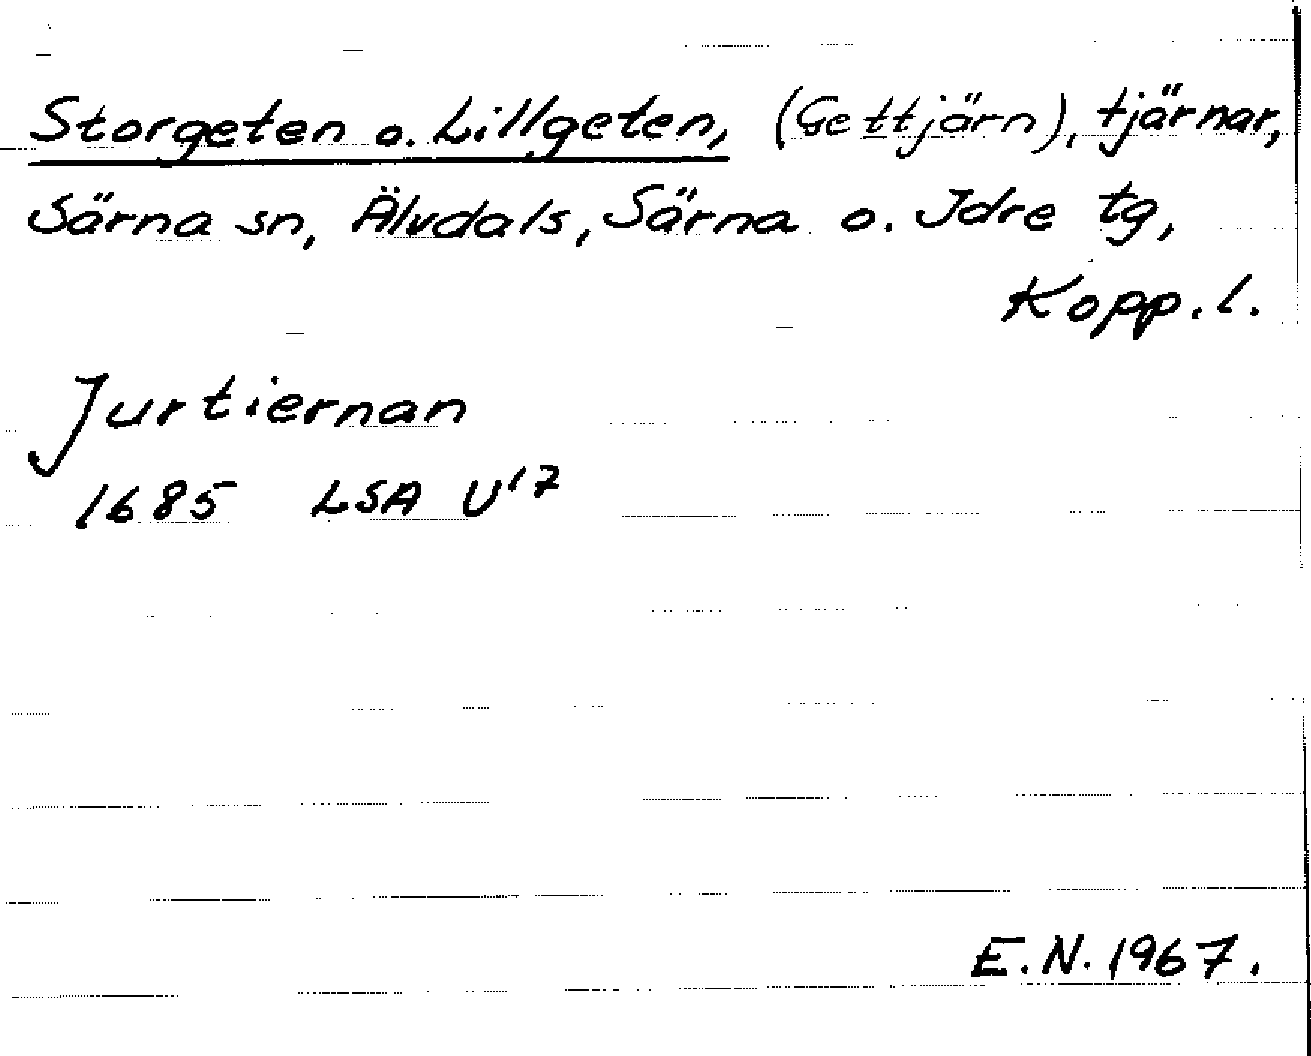 Storgeten o. Lillgeten, (Gettjärn), tjärnar,
Särna sn, Älvdals, Särna o. Idre tg,
Kopp. l.
Jurtiernan
1685 LSA U¹⁷
E.N. 1967.